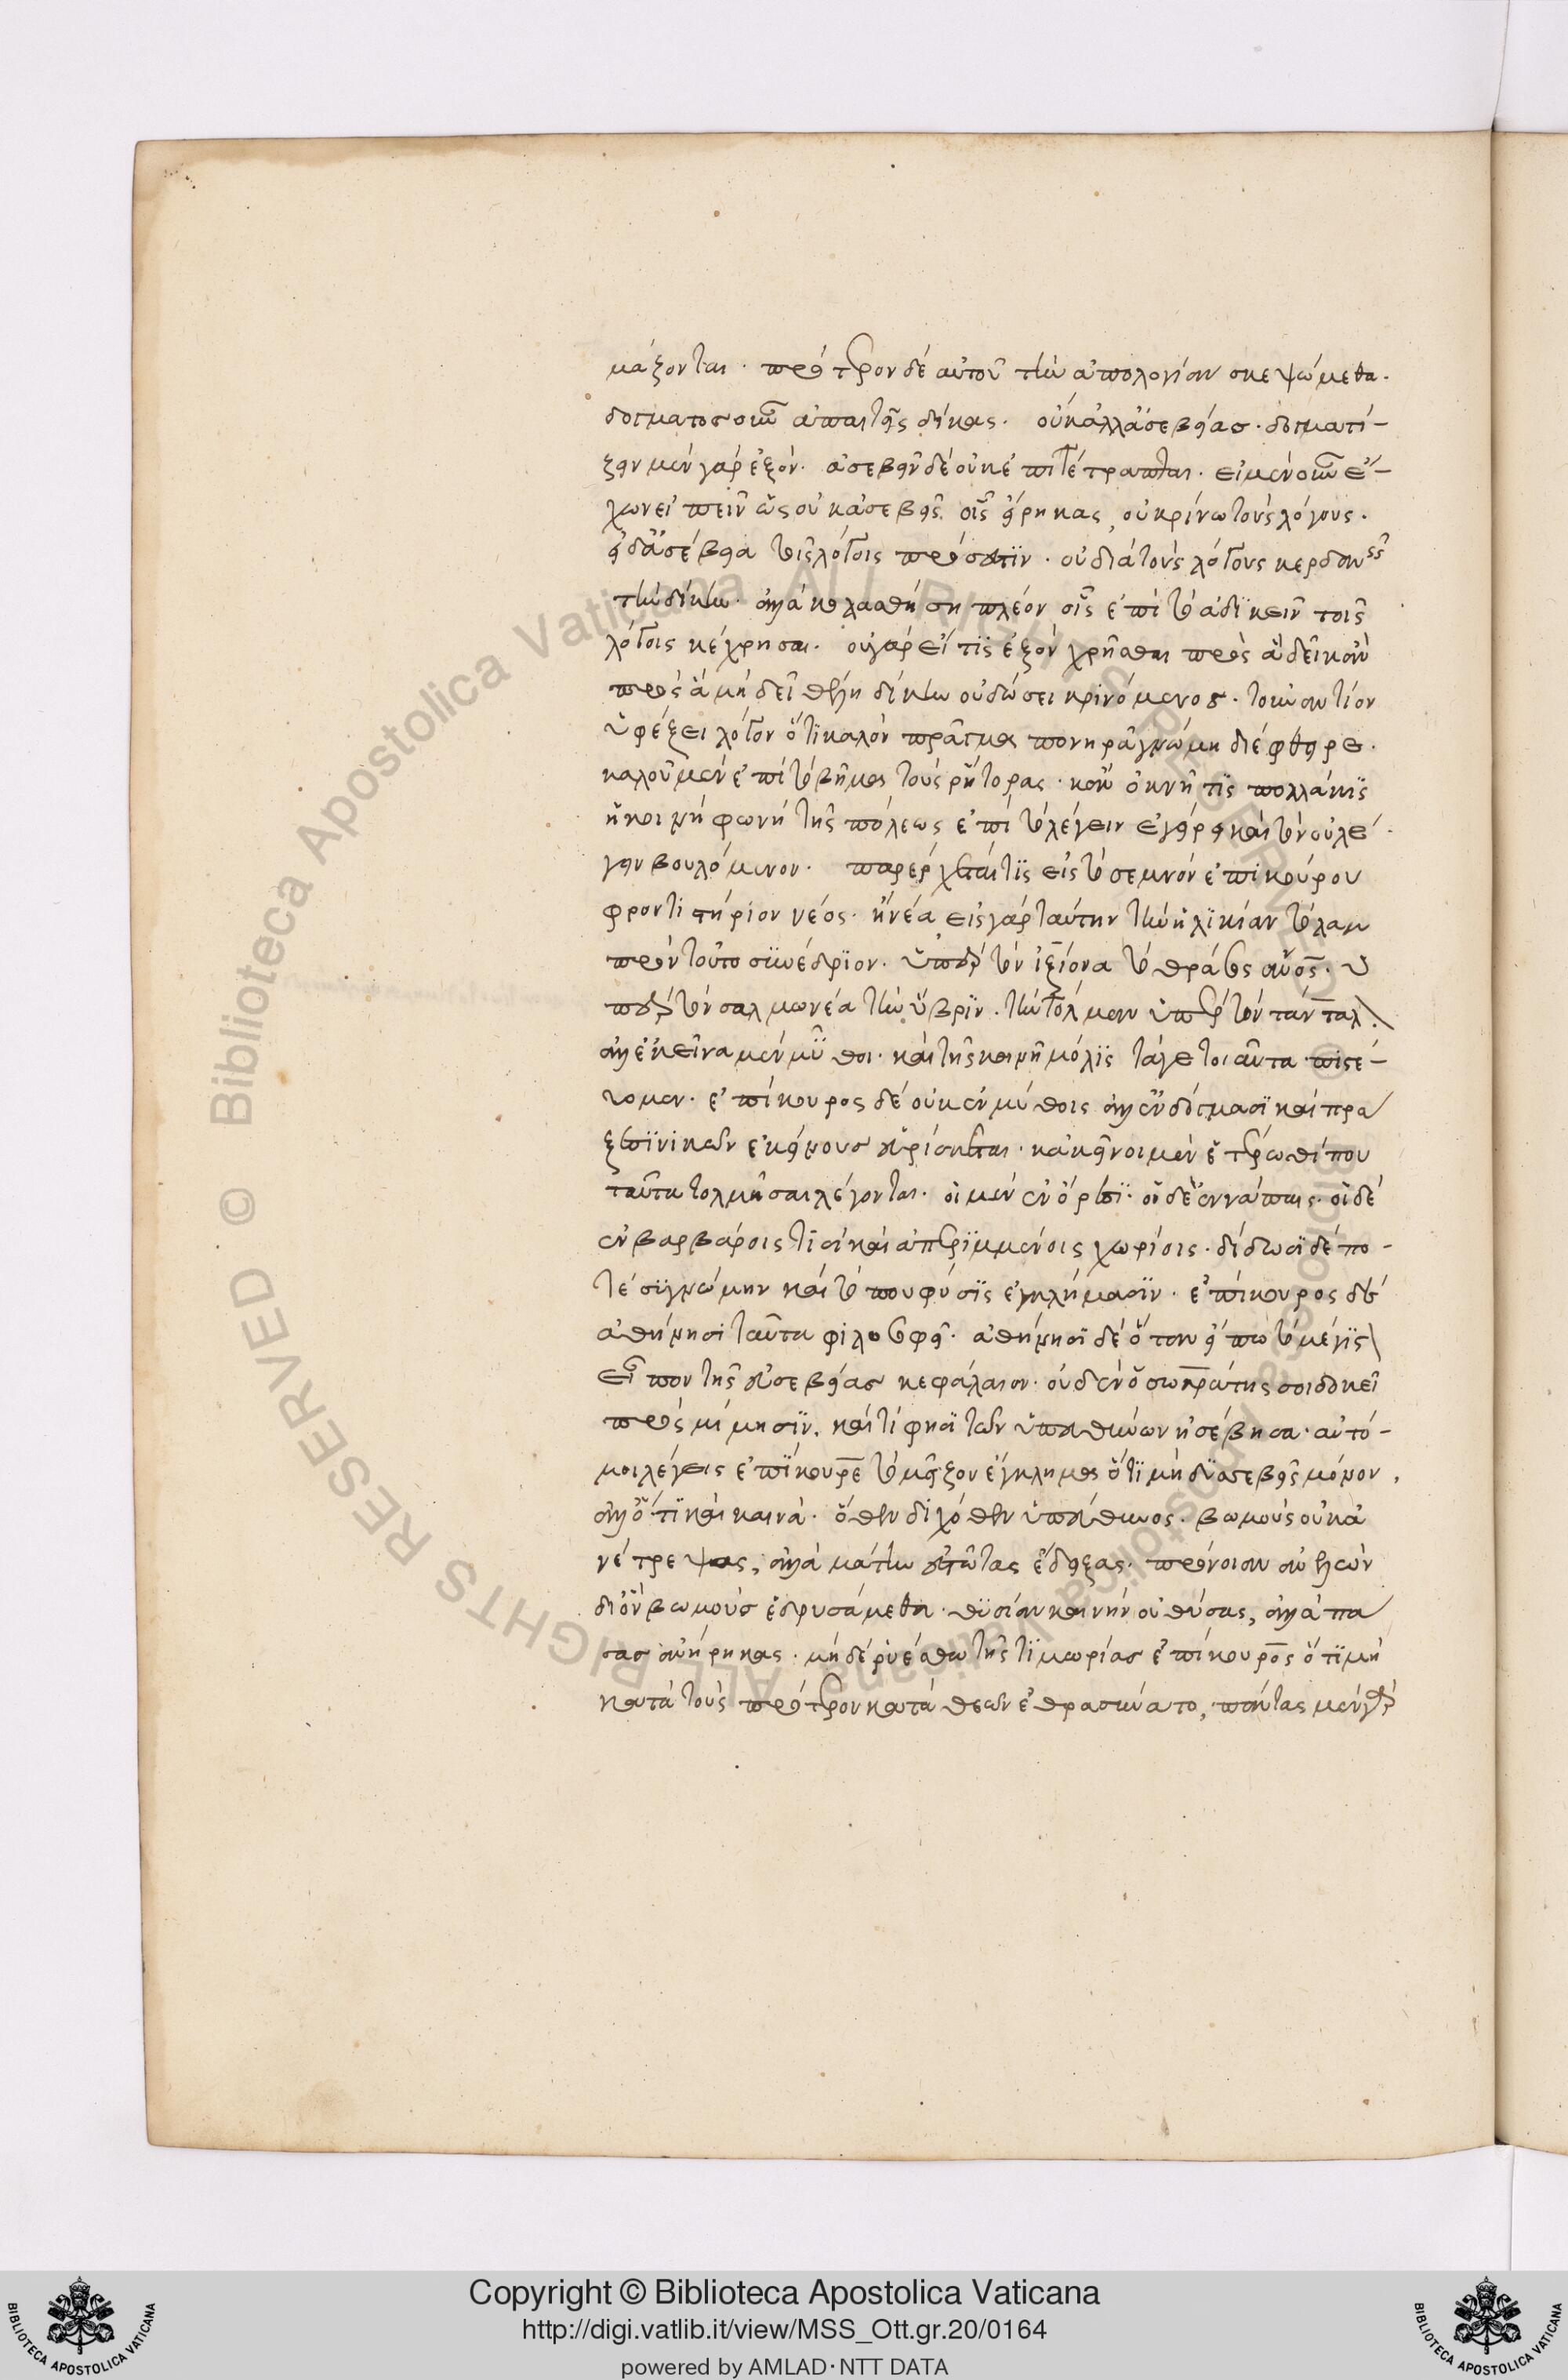 μάζονται· πρότερον δὲ αὐτοῦ τὴν ἀπολογίαν σκεψώμεθα·
δόγματος οὖν ἀπαιτεῖς δίκας· οὐκ ἀλλ' ἀσεβείας· δογματί-
ζειν μὲν γὰρ ἐξόν· ἀσεβεῖν δὲ οὐκ ἐπιτέτραπται· εἰ μὲν οὖν ἔ-
χων εἰπεῖν ὡς οὐκ ἀσεβεῖς οἷς εἴρηκας, οὐ κρίνω τοὺς λόγους·
εἰ δ' ἀσέβεια τοῖς λόγοις πρόσεστιν· οὐ διὰ τοὺς λόγους κερδανεῖς
τὴν δίκην· ἀλλὰ κολασθήσῃ πλέον οἷς ἐπὶ τὸ ἀδικεῖν τοῖς
λόγοις κέχρησαι· οὐ γὰρ εἴ τις ἐξὸν χρῆσθαι πρὸς ἃ δεῖ κἂν
πρὸς ἃ μὴ δεῖ θέλῃ δίκην οὐ δώσει κρινόμενος· τοὐναντίον
ὑφέξει λόγον ὅτι καλὸν πρᾶγμα πονηρᾷ γνώμῃ διέφθειρε·
καλοῦμεν ἐπὶ τὸ βῆμα τοὺς ῥήτορας· κἂν ὀκνῇ τις πολλάκις
ἡ κοινὴ φωνὴ τῆς πόλεως ἐπὶ τὸ λέγειν ἐγείρει καὶ τὸν οὐ λέ-
γειν βουλόμενον· παρέρχεται τις εἰς τὸ σεμνὸν ἐπικούρου
φροντιστήριον νέος· ἢ νέα εἰς γὰρ ταύτην τὴν ἡλικίαν τὸ λαμ
πρὸν τοῦτο συνέδριον· ὑπὲρ τὸν ἰξίονα τὸ θράσος οὗτος· ὑ
πὲρ τὸν σαλμωνέα τὴν ὕβριν· τὴν τόλμαν ὑπὲρ τὸν τάνταλον·
ἀλλ' ἐκεῖνα μὲν μῦθοι· καὶ τῆς σκηνῆς μόλις τά γε τοιαῦτα πιστεύ-
ομεν· ἐπίκουρος δὲ οὐκ ἐν μύθοις ἀλλ' ἐν δόγμασι καὶ πρά
ξεσι νικῶν ἐκείνους εὑρίσκεται· κἀκεῖνοι μὲν ἑτέρωθί που
ταῦτα τολμῆσαι λέγονται· οἱ μὲν ἐν ὄρεσι· οἱ δὲ ἐν νάπαις· οἱ δὲ
ἐν βαρβάροις τισὶ καὶ ἀπερριμμένοις χωρίοις· δίδωσι δέ πο-
τε συγγνώμην καὶ τόπου φύσις ἐγκλήμασιν· ἐπίκουρος δὲ
ἀθήνησι ταῦτα φιλοσοφεῖ· ἀθήνησι δὲ ὅταν εἴπω τὸ μέγιστον
εἶπον τῆς ἀσεβείας κεφάλαιον· οὐδὲν ὁ σωκράτης σοι δοκεῖ
πρὸς μίμησιν· καὶ τί φησι τῶν ὑπευθύνων ἠσέβησα· αὐτό-
μοι λέγεις ἐπίκουρε τὸ μεῖζον ἔγκλημα ὅτι μὴ δι' ἀσεβεῖς μόνον,
ἀλλ' ὅτι καὶ καινά· ὅθεν διχόθεν ὑπεύθυνος· βωμοὺς οὐκ ἀ
νέτρεψας, ἀλλὰ μάτην ἑστῶτας ἔδειξας· πρόνοιαν ἀνελὼν
δι' ὃν βωμοὺς ἱδρυσάμεθα· θυσίαν καινὴν οὐ θύσας, ἀλλὰ πά
σας ἀνῄρηκας· μὴ δὲ ῥυέσθω τῆς τιμωρίας ἐπίκουρος ὅτι μὴ
κατὰ τοὺς πρότερον κατὰ θεῶν ἐθρασύνατο, πάντας μὲν γὰρ
Biblioteca Apostolica Vaticana ALL RIGHTS RESERVED ©
Biblioteca Apostolica Vaticana ALL RIGHTS RESERVED ©
Copyright © Biblioteca Apostolica Vaticana
http://digi.vatlib.it/view/MSS_Ott.gr.20/0164
powered by AMLAD·NTT DATA
BIBLIOTECA APOSTOLICA VATICANA
BIBLIOTECA APOSTOLICA VATICANA